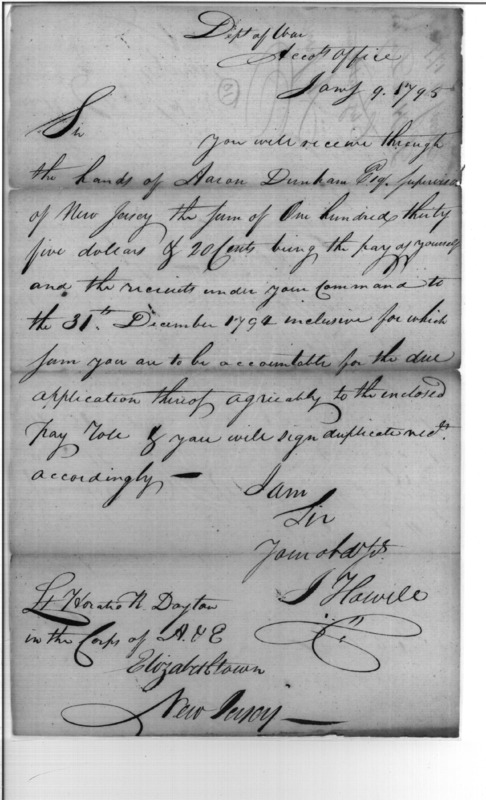 Dept of War
Accots Office
Jany 9. 1795
Sir
you will receive through
the hands of Aaron Dunham Esq. Supervisor
of New Jersey the sum of One hundred thirty
five dollars & 20 Cents being the pay of yourself
and the recruits under your Command to
the 31st. December 1794 inclusive for which
sum you are to be accountable for the due
application thereof agreeably to the enclosed
pay Role & you will sign duplicate rects.
accordingly —
I am
Sir
Your obdt St.
J Howell
Lt Horatio R. Dayton
in the Corps of A. & E
Elizabethtown
New Jersey —